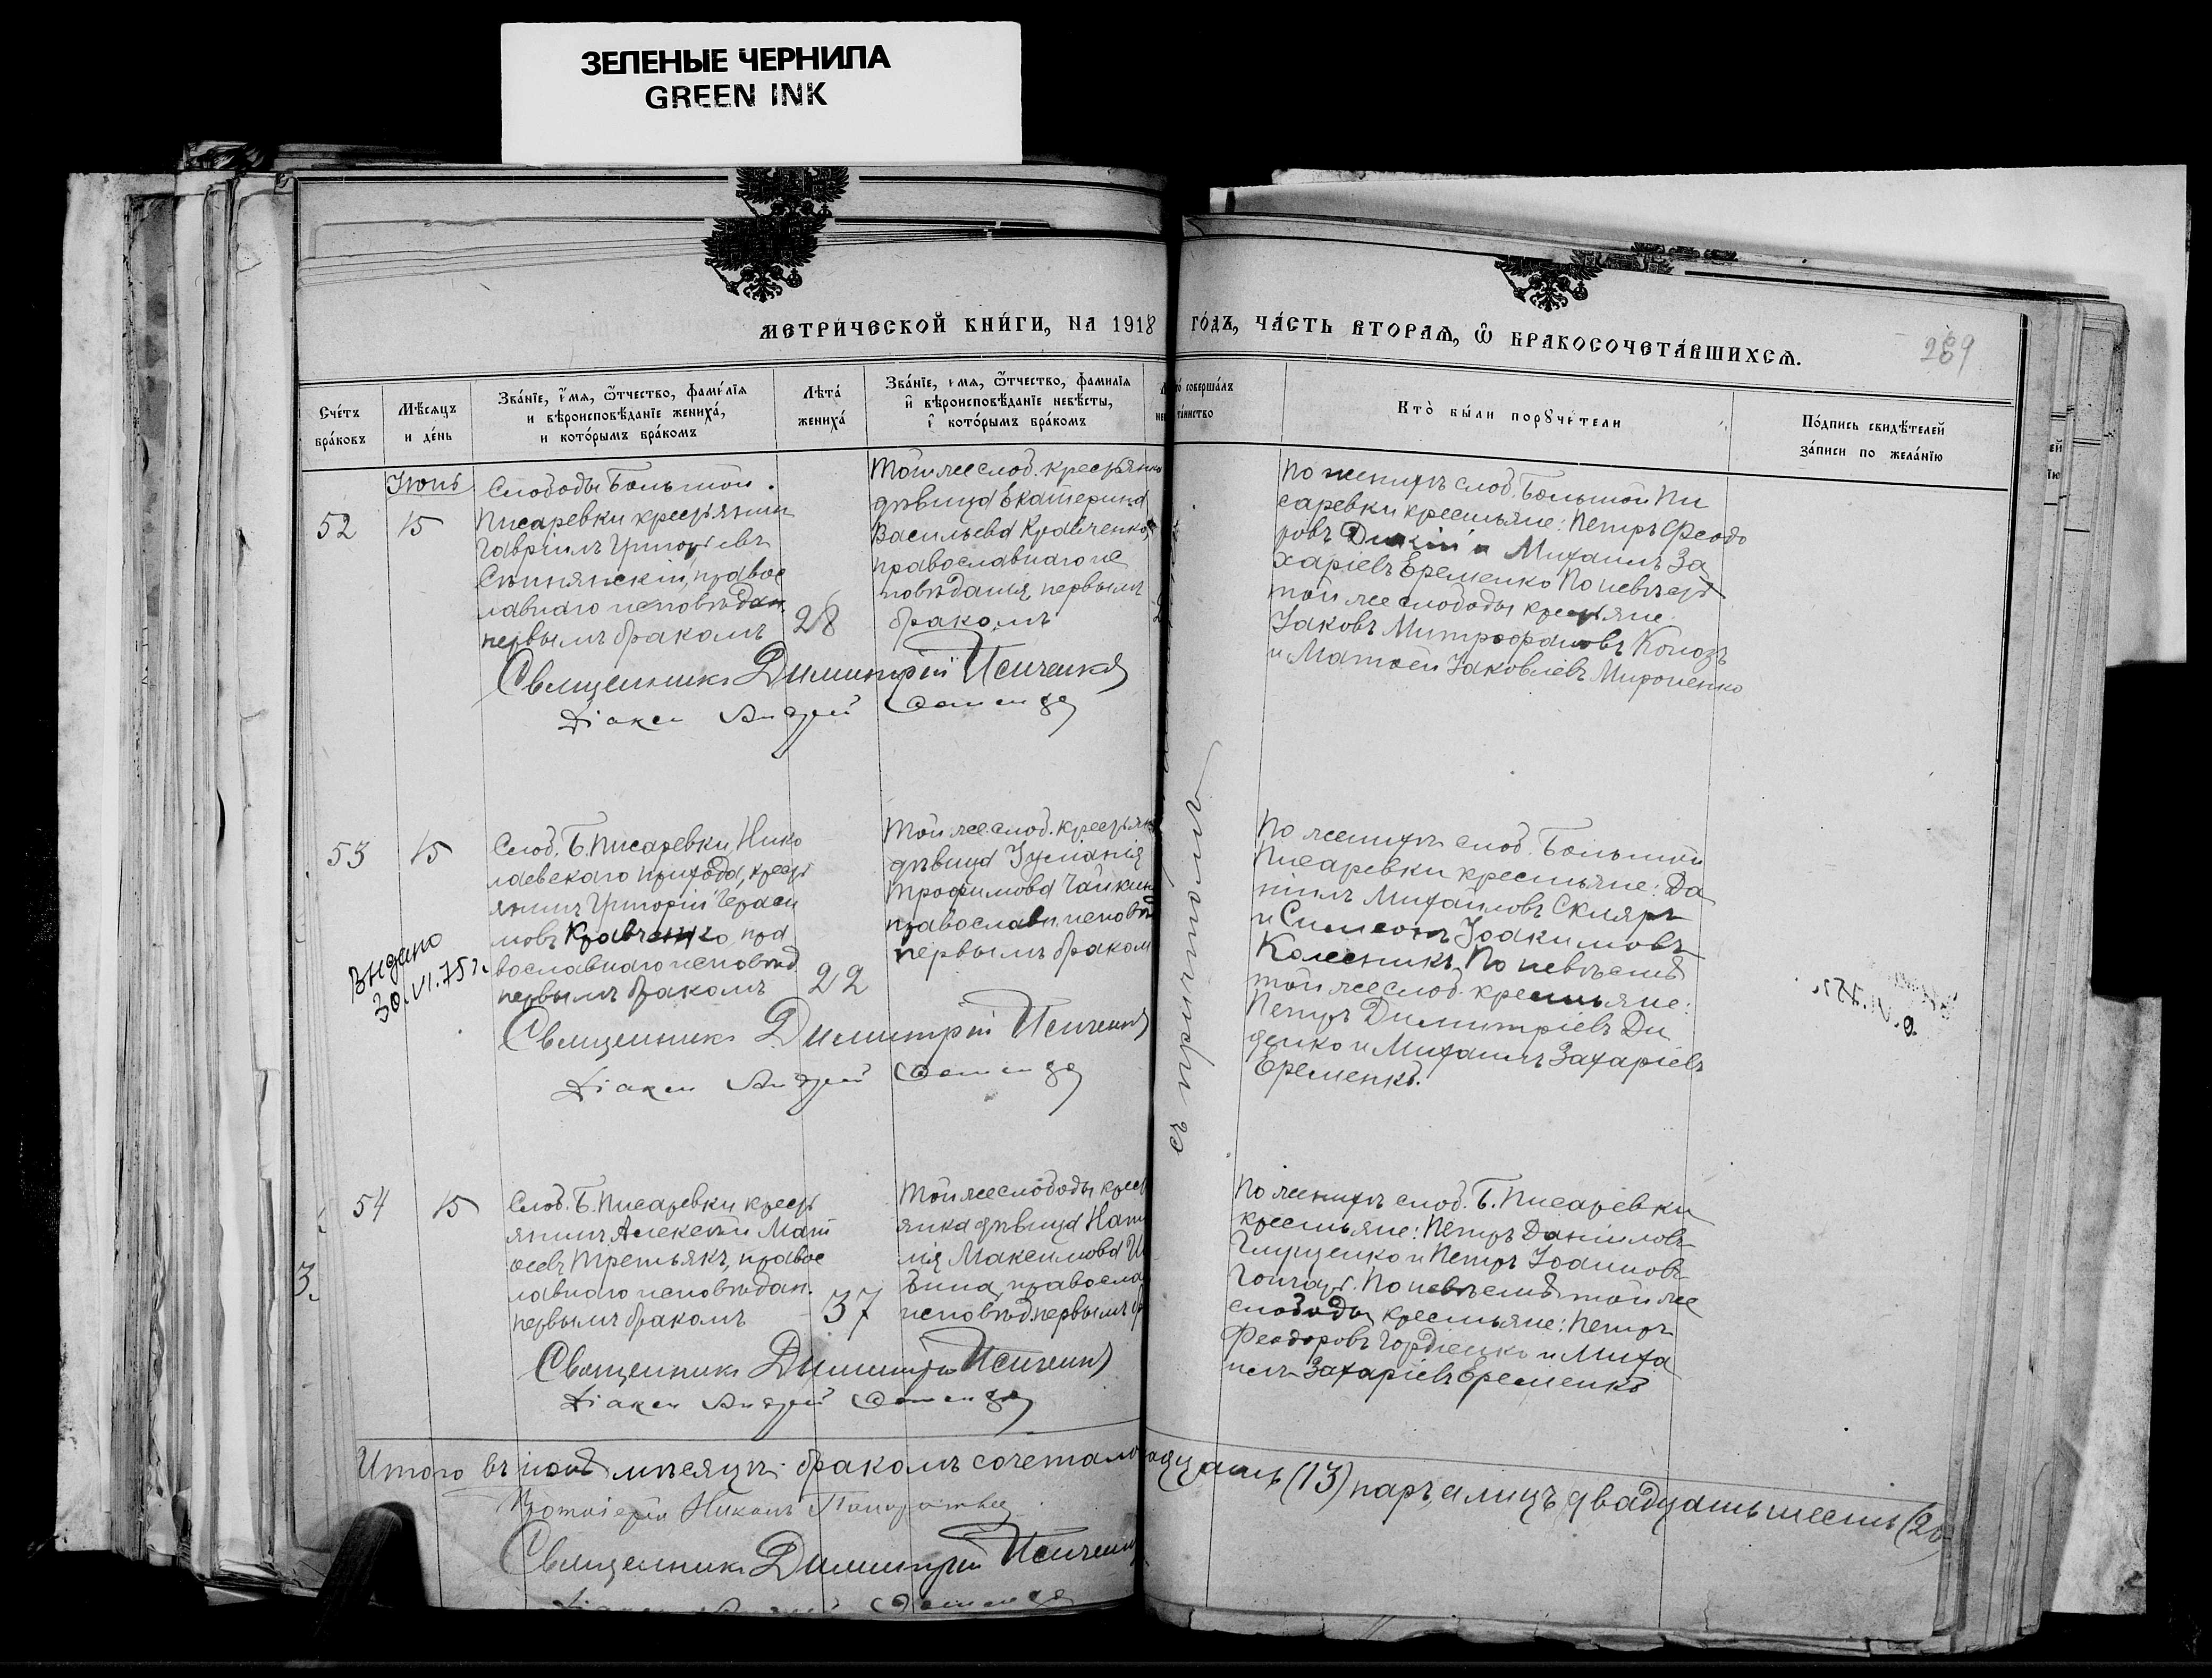 ЗЕЛЕНЫЕ ЧЕРНИЛА
GREEN INK
МЕТРИ́ЧЕСКОЙ КНИ́ГИ, НА 1918 ГО́ДЪ, ЧА́СТЬ ВТОРАѦ, Ѽ БРАКОСОЧЕТА́ВШИХСѦ.
289
Сче́тъ
бра́ковъ
Мѣсяцъ
и де́нь
Зва́нїе, и́мѧ, ѿтчество, фами́лїѧ
и вѣроисповѣ́данїе жениха́,
и кото́рымъ бра́комъ
Лѣта́
жениха́
Зва́нїе, имѧ, ѿтчество, фамилїѧ
и вѣроисповѣ́данїе невѣ́сты,
и кото́рымъ бра́комъ
совершáлъ
таинство
Кто̀ бы́ли порꙋчи́тели
По́дпись свидѣ́телей
за́писи по жела́нїю
52
Іюнь
15
Слободы Большой
Писаревки крестьянинъ
Гавріилъ Григорьевъ
правос
лавнаго исповѣдан.
первымъ бракомъ
28
Той же слод. крестьянка
дѣвица Екатерина
Васильева Кравченкова
православнаго ис
повѣданія, первымъ
бракомъ
По женихѣ слод. Большой Пи
саревки крестьяне: Петръ Феодо
ровъ Дикій и Михаилъ За
харіевъ Еременко По невѣстѣ
той же слободы крестьяне
Іаковъ Митрофановъ
и Матѳей Іаковлевъ Мироненко
Священникъ Димитрій
Діаконъ Андрей
53
15
Слод. Б. Писаревки, Нико
лаевскаго прихода, крест
янинъ Григорій Гераси
мовъ Кравченко, пра
вославнаго исповѣд
первымъ бракомъ
22
Выдано
30.VI.75 г.
Той же слод. крестьянка
дѣвица Іуліанія
Трофимова Чайкина
православн. исповѣд
первымъ браком
По женихѣ слод. Большой
Писаревки крестьяне: Да
ніилъ Михайловъ Скляръ
и Симеонъ Іоакимовъ
Колесникъ. По невѣстѣ
той же слод. крестьяне:
Петръ Димитріевъ Ди
денко и Михаилъ Захаріевъ
Еременко.
Священникъ Димитрій
Діаконъ Андрей
54
15
Слод. Б. Писаревки крест
янинъ Алексѣй Мат
ѳеевъ Третьякъ, правос
лавнаго исповѣдан.
первымъ бракомъ
37
Той же слободы крест
янка дѣвица Ната
лія Максимова
православ
исповѣд. первымъ б
По женихѣ слод. Б. Писаревки
крестьяне: Петръ Даніиловъ
Глущенко и Петръ Іоанновъ
Гончаръ. По невѣстѣ той же
слободы крестьяне: Петръ
Феодоровъ Гордіенко и Миха
илъ Захаріевъ Еременко
3.
Священникъ Димитрій
Діаконъ Андрей
Итого въ іюнѣ мѣсяцѣ бракомъ сочетало адцать (13) паръ, а лицъ двадцать шесть (26
Протоіерей Никонъ
Священникъ Димитрій